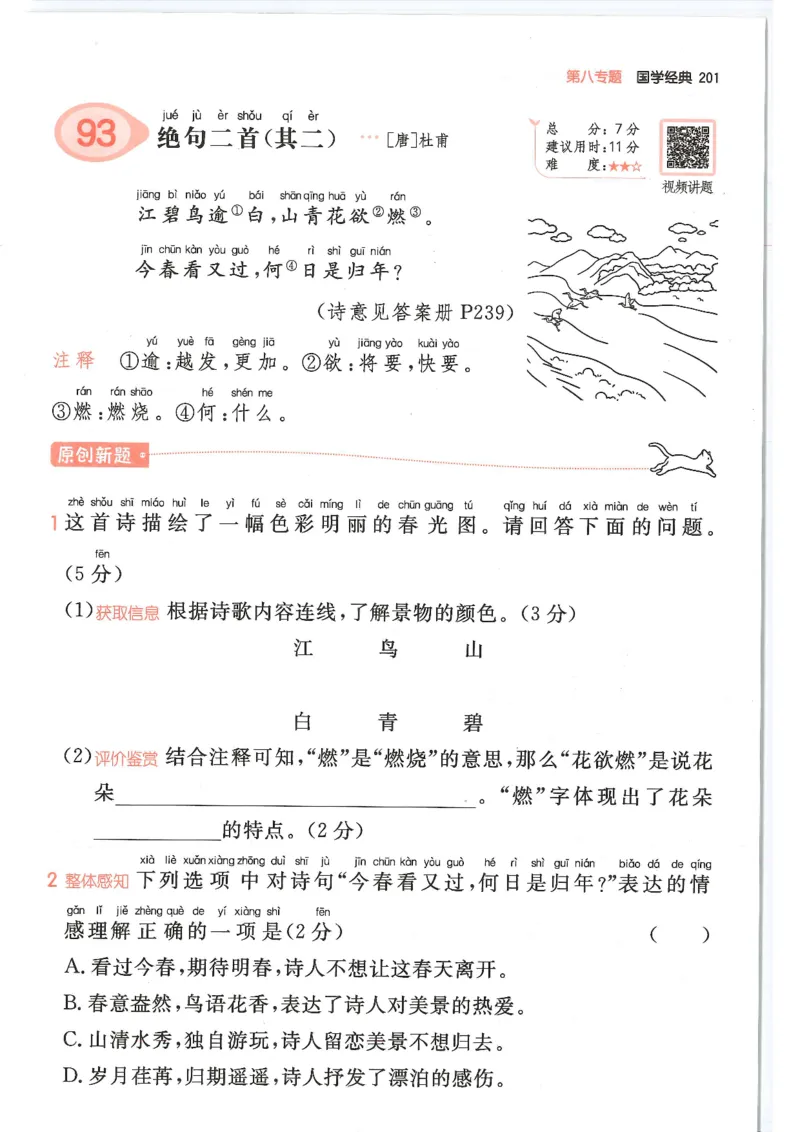 第八专题 国学经典 201
jué jù èr shǒu qí èr
93 绝句二首(其二) …[唐]杜甫
总 分:7分
建议用时:11分
难 度:★★☆
视频讲题
jiāng bì niǎo yú bái shān qīng huā yù rán
江碧鸟逾①白,山青花欲②燃③。
jīn chūn kàn yòu guò hé rì shì guī nián
今春看又过,何④日是归年?
(诗意见答案册P239)
yú yuè fā gèng jiā yù jiāng yào kuài yào
注释 ①逾:越发,更加。②欲:将要,快要。
rán rán shāo hé shén me
③燃:燃烧。④何:什么。
原创新题
zhè shǒu shī miáo huì le yì fú sè cǎi míng lì de chūn guāng tú qǐng huí dá xià miàn de wèn tí
1 这首诗描绘了一幅色彩明丽的春光图。请回答下面的问题。
fēn
(5分)
(1)获取信息 根据诗歌内容连线,了解景物的颜色。(3分)
江 鸟 山
白 青 碧
(2)评价鉴赏 结合注释可知,“燃”是“燃烧”的意思,那么“花欲燃”是说花
朵____________________。“燃”字体现出了花朵
__________的特点。(2分)
xià liè xuǎn xiàng zhōng duì shī jù jīn chūn kàn yòu guò hé rì shì guī nián biǎo dá de qíng
2 整体感知 下列选项中对诗句“今春看又过,何日是归年?”表达的情
gǎn lǐ jiě zhèng què de yí xiàng shì fēn
感理解正确的一项是(2分) ( )
A. 看过今春,期待明春,诗人不想让这春天离开。
B. 春意盎然,鸟语花香,表达了诗人对美景的热爱。
C. 山清水秀,独自游玩,诗人留恋美景不想归去。
D. 岁月荏苒,归期遥遥,诗人抒发了漂泊的感伤。